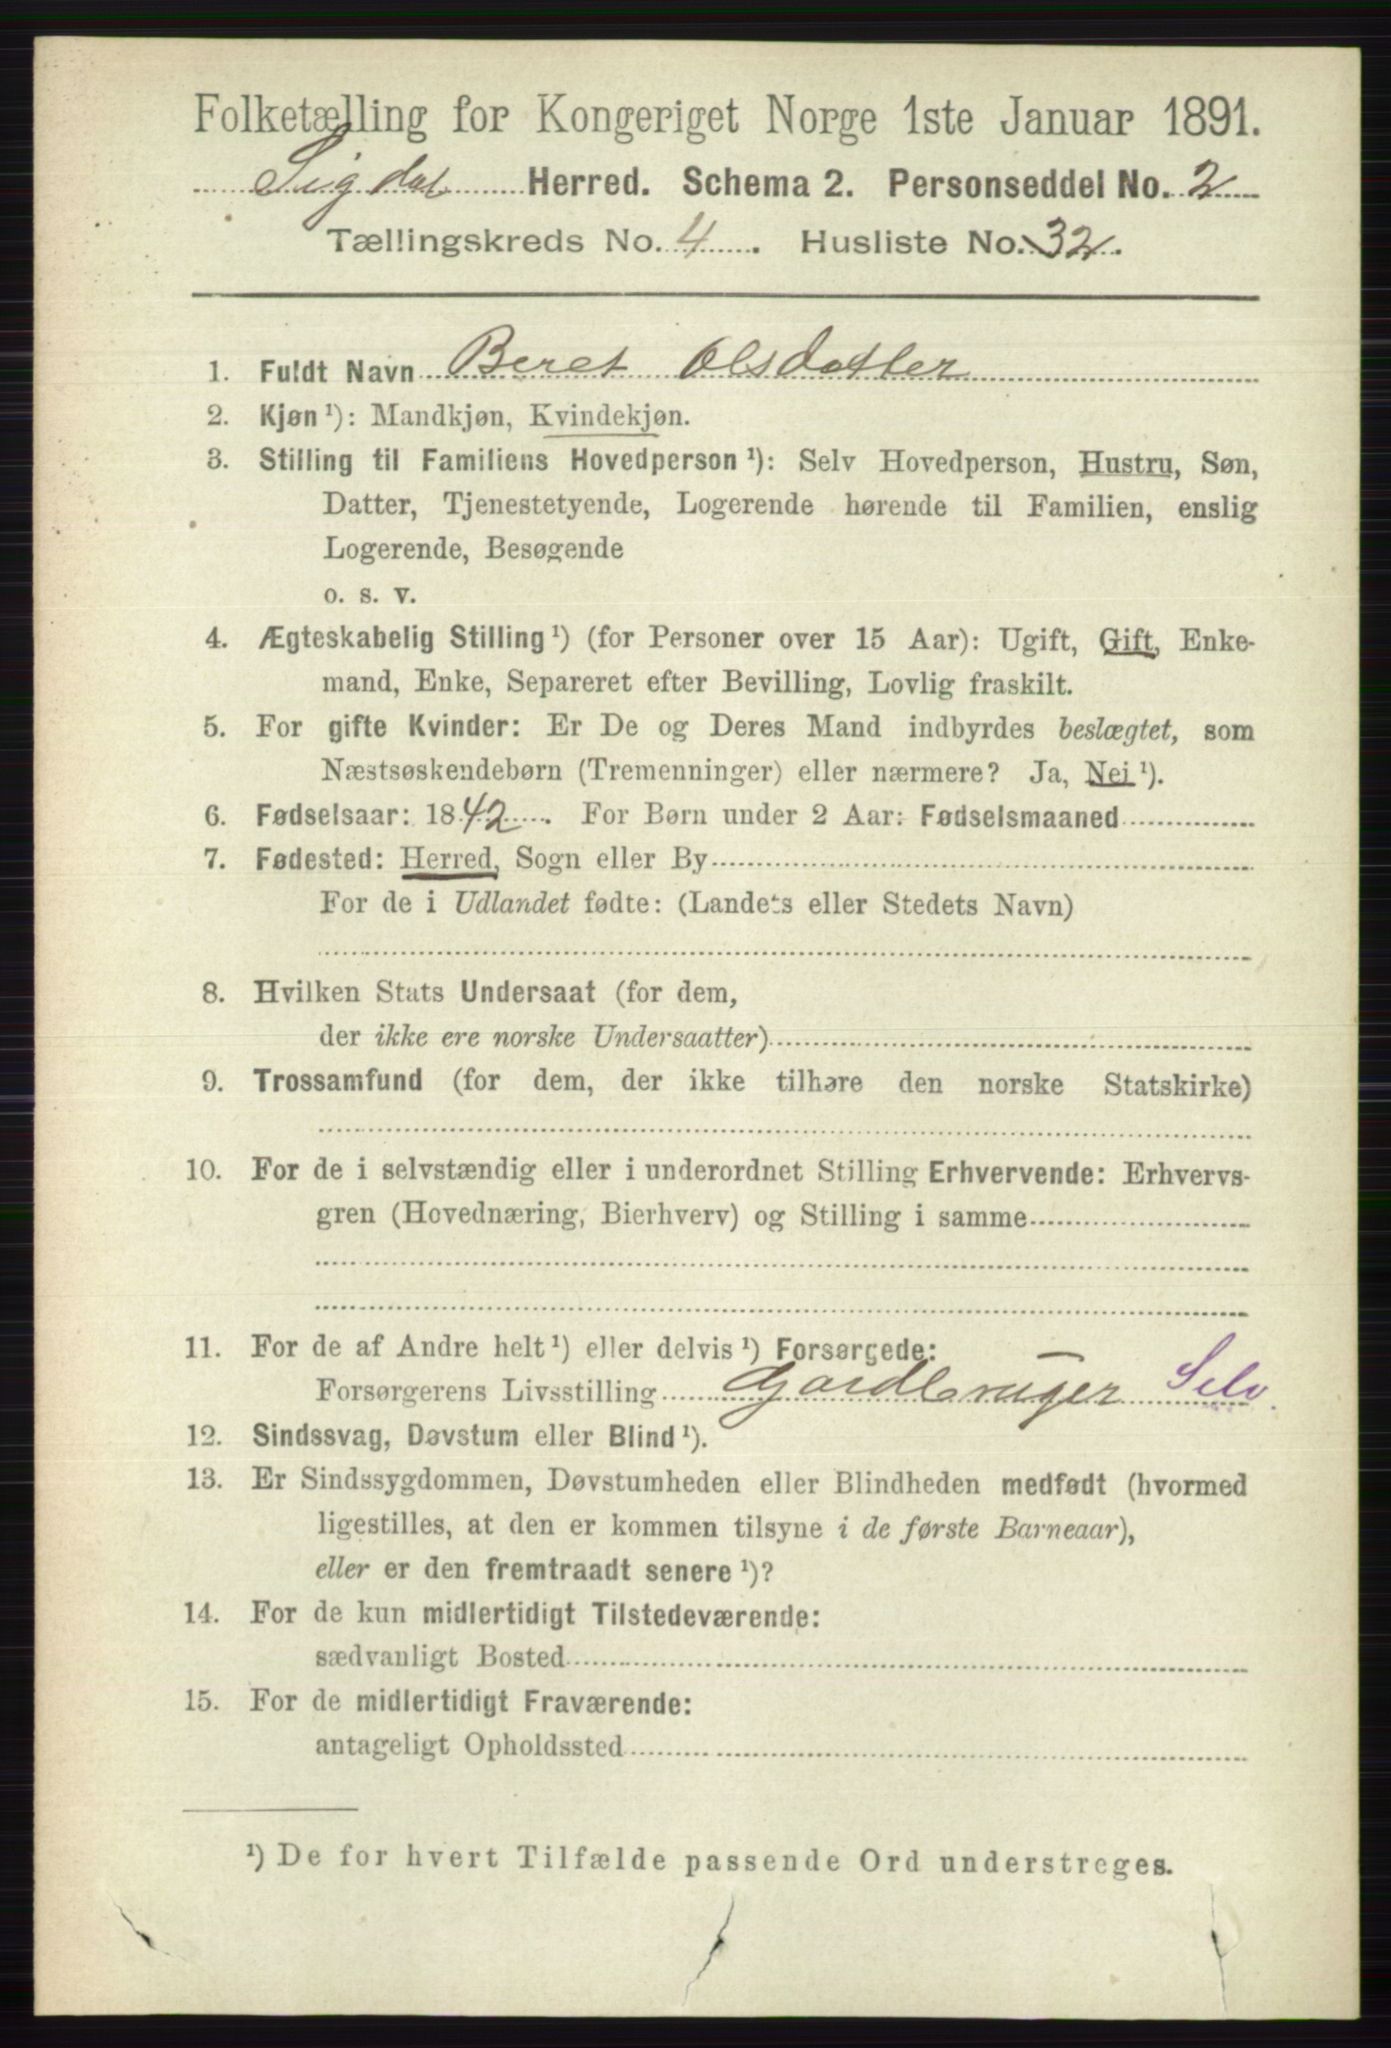 Folketælling for Kongeriget Norge 1ste Januar 1891.
Sigdal Herred. Schema 2. Personseddel No. 2
Tællingskreds No. 4. Husliste No. 32.
1. Fuldt Navn Beret Olsdatter
2. Kjøn ¹): Mandkjøn, Kvindekjøn.
3. Stilling til Familiens Hovedperson ¹): Selv Hovedperson, Hustru, Søn,
Datter, Tjenestetyende, Logerende hørende til Familien, enslig
Logerende, Besøgende
o. s. v.
4. Ægteskabelig Stilling ¹) (for Personer over 15 Aar): Ugift, Gift, Enke-
mand, Enke, Separeret efter Bevilling, Lovlig fraskilt.
5. For gifte Kvinder: Er De og Deres Mand indbyrdes beslægtet, som
Næstsøskendebørn (Tremenninger) eller nærmere? Ja, Nei ¹).
6. Fødselsaar: 1842. For Børn under 2 Aar: Fødselsmaaned
7. Fødested: Herred, Sogn eller By
For de i Udlandet fødte: (Landets eller Stedets Navn)
8. Hvilken Stats Undersaat (for dem,
der ikke ere norske Undersaatter)
9. Trossamfund (for dem, der ikke tilhøre den norske Statskirke)
10. For de i selvstændig eller i underordnet Stilling Erhvervende: Erhvervs-
gren (Hovednæring, Bierhverv) og Stilling i samme
11. For de af Andre helt ¹) eller delvis ¹) Forsørgede:
Forsørgerens Livsstilling Gardbruger Selv.
12. Sindssvag, Døvstum eller Blind ¹).
13. Er Sindssygdommen, Døvstumheden eller Blindheden medfødt (hvormed
ligestilles, at den er kommen tilsyne i de første Barneaar),
eller er den fremtraadt senere ¹)?
14. For de kun midlertidigt Tilstedeværende:
sædvanligt Bosted
15. For de midlertidigt Fraværende:
antageligt Opholdssted
¹) De for hvert Tilfælde passende Ord understreges.